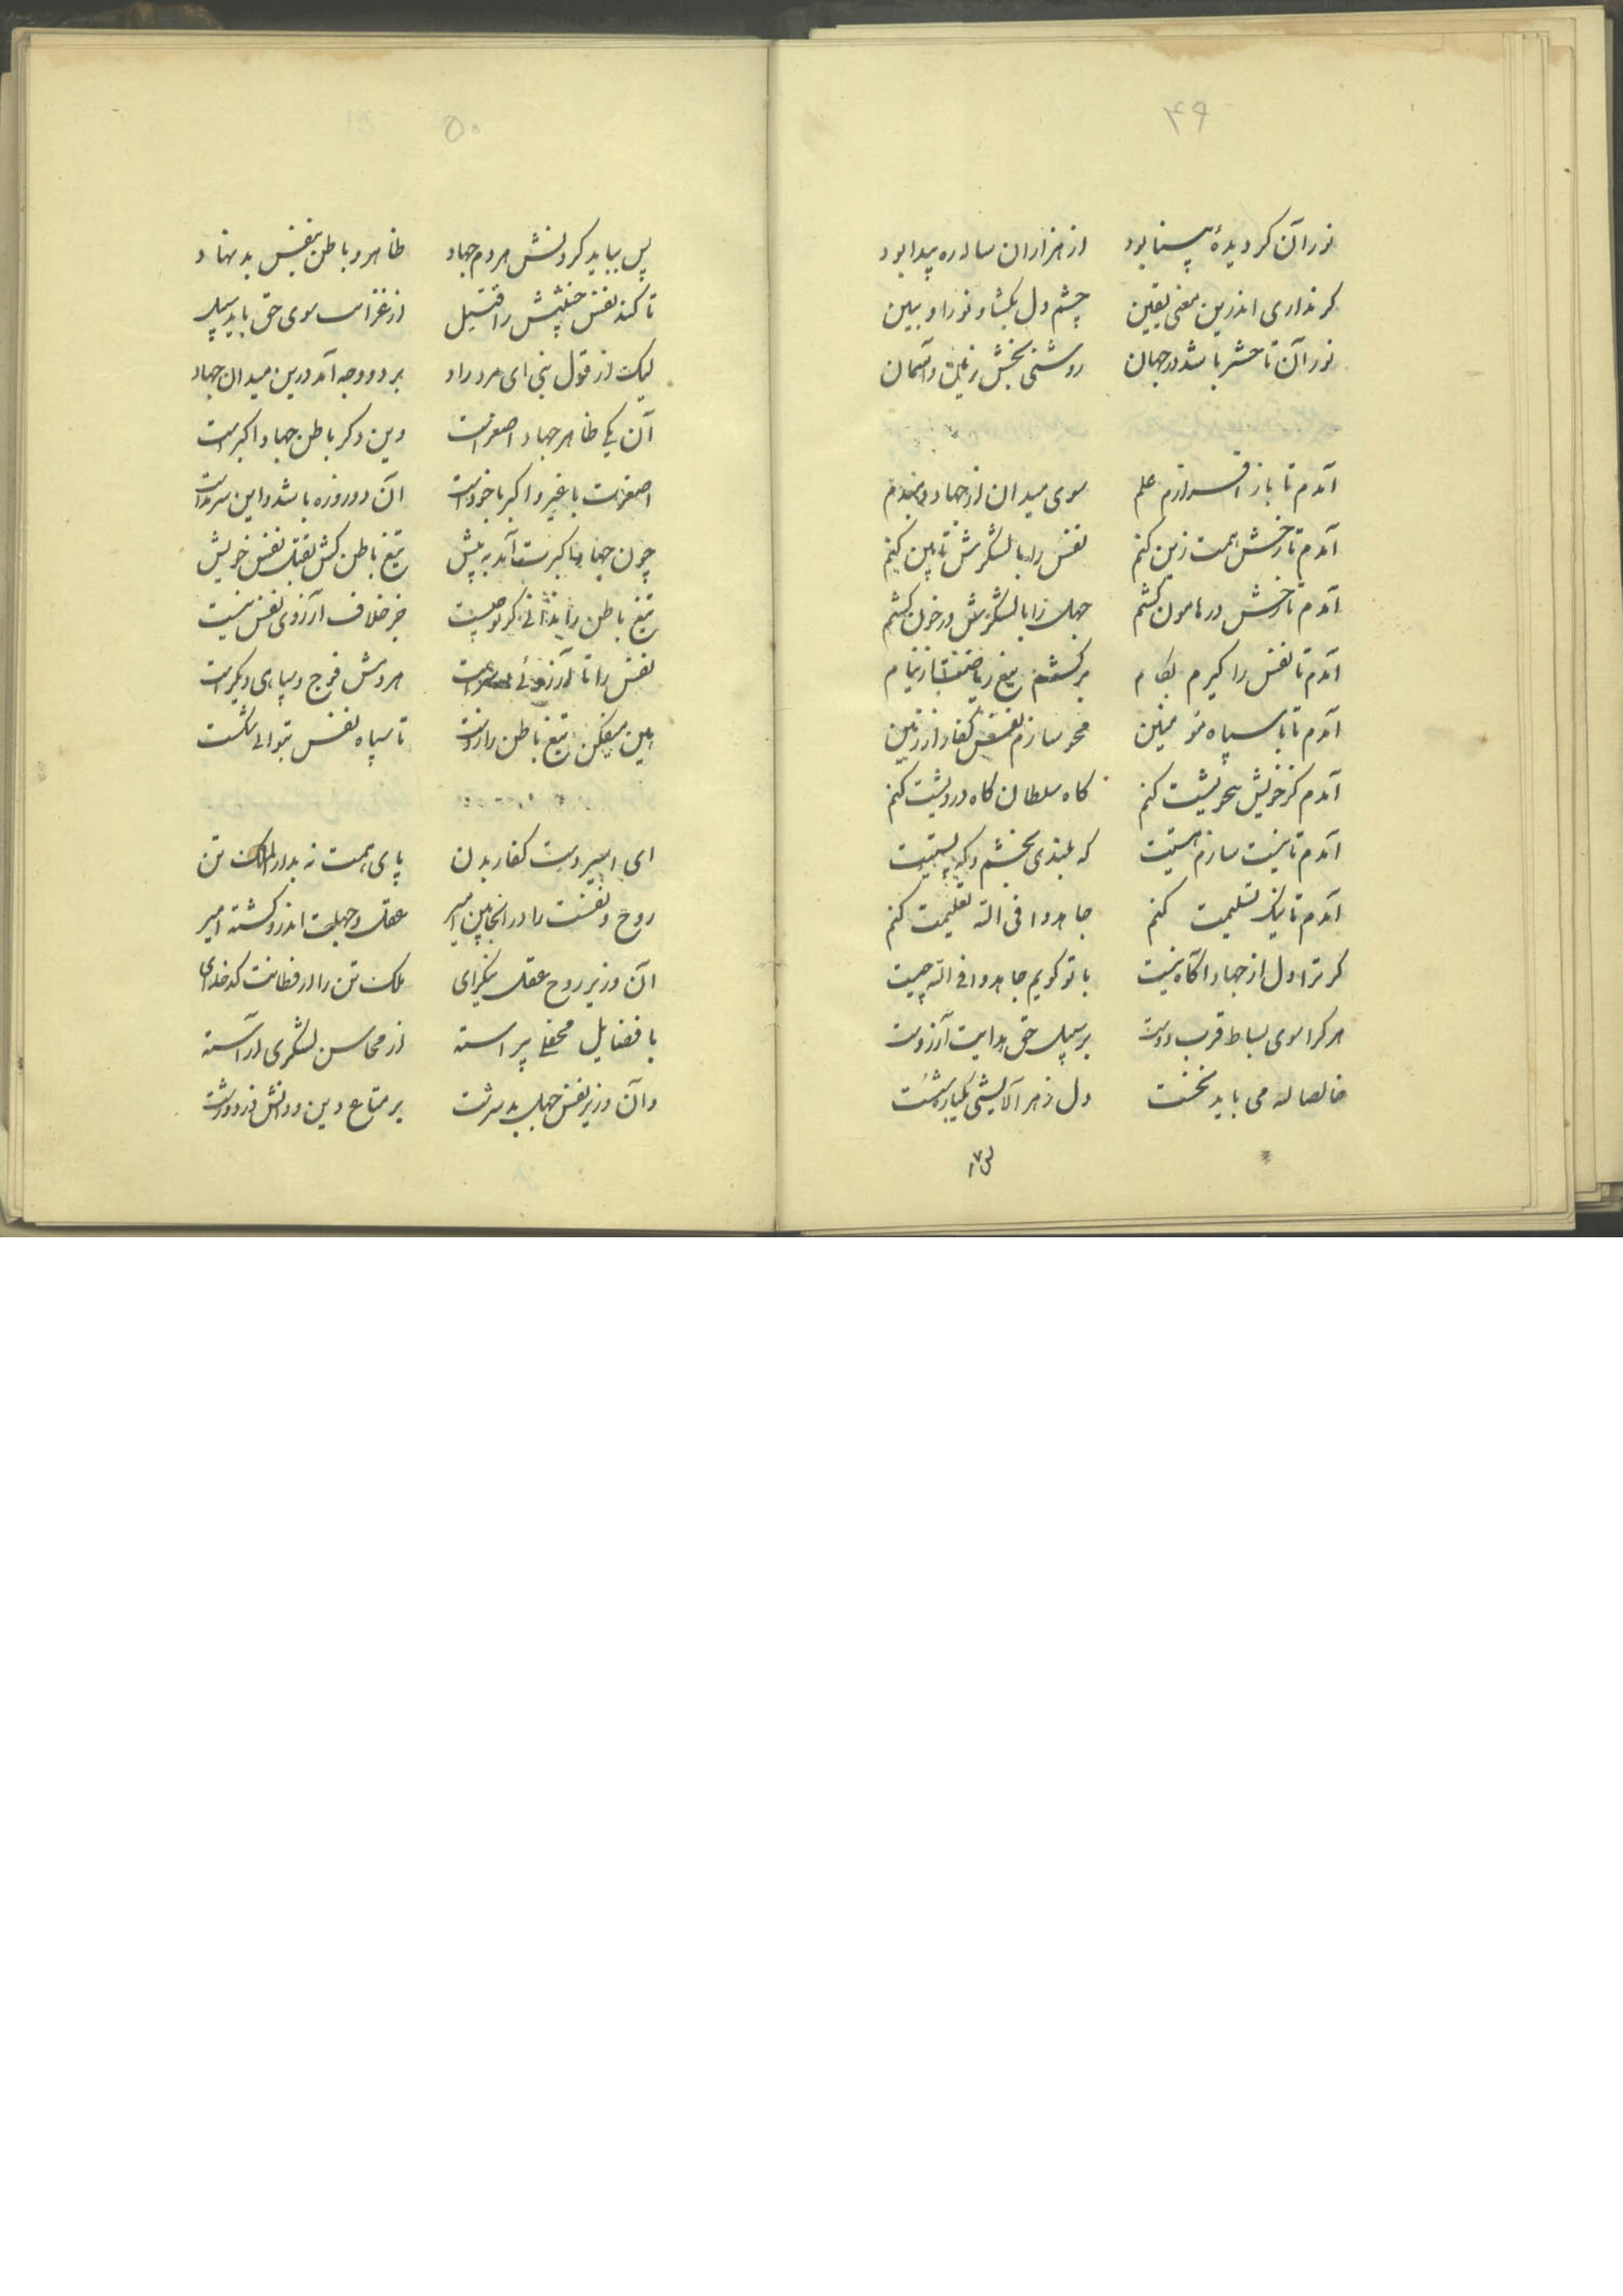 ۴۹
نور آن کر دیدهٔ بینا بود از هزاران ساله ره پیدا بود
کر نداری اندرین معنی یقین چشم دل بکشا و نور او ببین
نور آن تا حشر باشد در جهان روشنی بخش زمین و آسمان
آمدم تا باز افرازم علم سوی میدان از جهاد
آمدم تا رخش همت زین کنم نفس را با لشکرش کنم
آمدم تا رخش در هامون کشم جهل را با لشکرش در خون کشم
آمدم تا نفس را کیرم بکام برکشم تیغ ریاضت از نیام
آمدم تا با سپاه مؤمنین محو سازم نقش کفار از زمین
آمدم کز خویش بیخویشت کنم کاه سلطان کاه درویشت کنم
آمدم تا نیست سازم هستیت که بلندی بخشم و که پستیت
آمدم تا نیک تسلیمت کنم جاهدوا فی الله تعلیمت کنم
کر ترا دل از جهاد آکاه نیست با تو کویم جاهدوا فی الله چیست
هر کرا سوی بساط قرب دوست بر سبیل حق هدایت آرزوست
خالصا له می باید نخست دل ز هر آلایشی یکباره شست
۵۰
پس بباید کردنش هر دم جهاد ظاهر و باطن بنفس بد نهاد
تا کند نفس خبیثش را قتیل از غزا سوی حق یابد سبیل
لیک از قول نبی ای مرد راد بر دو وجه آمد درین میدان جهاد
آن یکی ظاهر جهاد اصغر است وین دکر باطن جهاد اکبر است
اصغرت با غیر و اکبر با خود است آن دو روزه باشد و این سرمد است
چون جهاد اکبرت آمد به پیش تیغ باطن کش بقتل نفس خویش
تیغ باطن را ندانی کر تو چیست جز خلاف آرزوی نفس نیست
نفس را تا آرزوئی در سر است هر دمش فوج و سپاهی دیکر است
هین میفکن تیغ باطن را ز دست تا سپاه نفس بتوانی شکست
ای اسیر دست کفار بدن پای همت نه بدار الملک تن
روح و نفست را در انجا بین امیر عقل و جهلت اندرو کشته امیر
آن وزیر روح عقل نیکرای ملک تن را در فطانت کدخدای
با فضایل محفلی پیراسته از محاسن لشکری آراسته
وان وزیر نفس جهل بد سرشت بر متاع دین و دانش